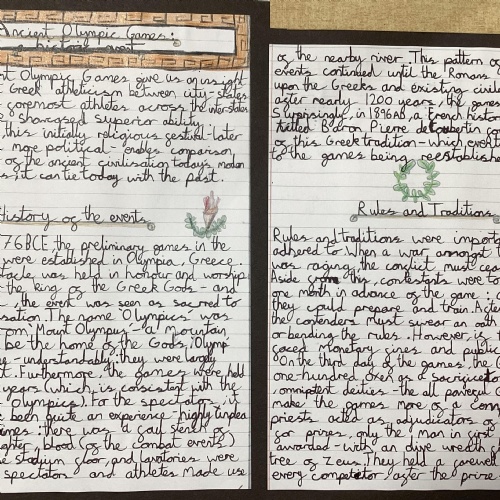 Ancient Olympic Games:
a historic event
st Olympic Games give us an insight
Greek athleticism between city-states
foremost athletes across the
showcased superior ability
this initially religious festival - later
more political - enables comparison
of the ancient civilisation today's modern
s; it can tie today with the past.
History of the events
76BCE the preliminary games in the
were established in Olympia, Greece.
tacle was held in honour and worship
the king of the Greek Gods - and
, the event was seen as sacred to
isation. The name 'Olympics' was
rom 'Mount Olympus' - a Mountain
be the home of the Gods; 'Olymp
ey - understandably; they were largely
t. Furthermore, the games were held
years (which is consistent with the
Olympics). For the spectators, it
e been quite an experience - highly
times: there was a foul stench of
, blood (of the combat events)
e stadium floor, and lavatories were
spectators and athletes made use
of the nearby river. This pattern of
events continued until the Romans
upon the Greeks and existing civil
after nearly 1200 years, the games
Surprisingly, in 1896AD, a French histor
titled Baron Pierre de Coubertin
of this Greek tradition - which event
to the games being reestablishe
Rules and Traditions
Rules and traditions were importa
adhered to. When a war amongst
was raging, the conflict must cea
Aside from this, contestants were to
one month in advance of the game:
they could prepare and train. After
the contenders must swear an oath
or bending the rules. However, is
faced monetary fines and public
On the third day of the games, the G
one-hundred oxen as a sacrifice
omnipotent deities - the all powerful G
make the games more of a com
priests acted as adjudicators of
for prizes, only the man in first
awarded - with an olive wreath f
tree of Zeus. They held a farewel
every competitor after the prize